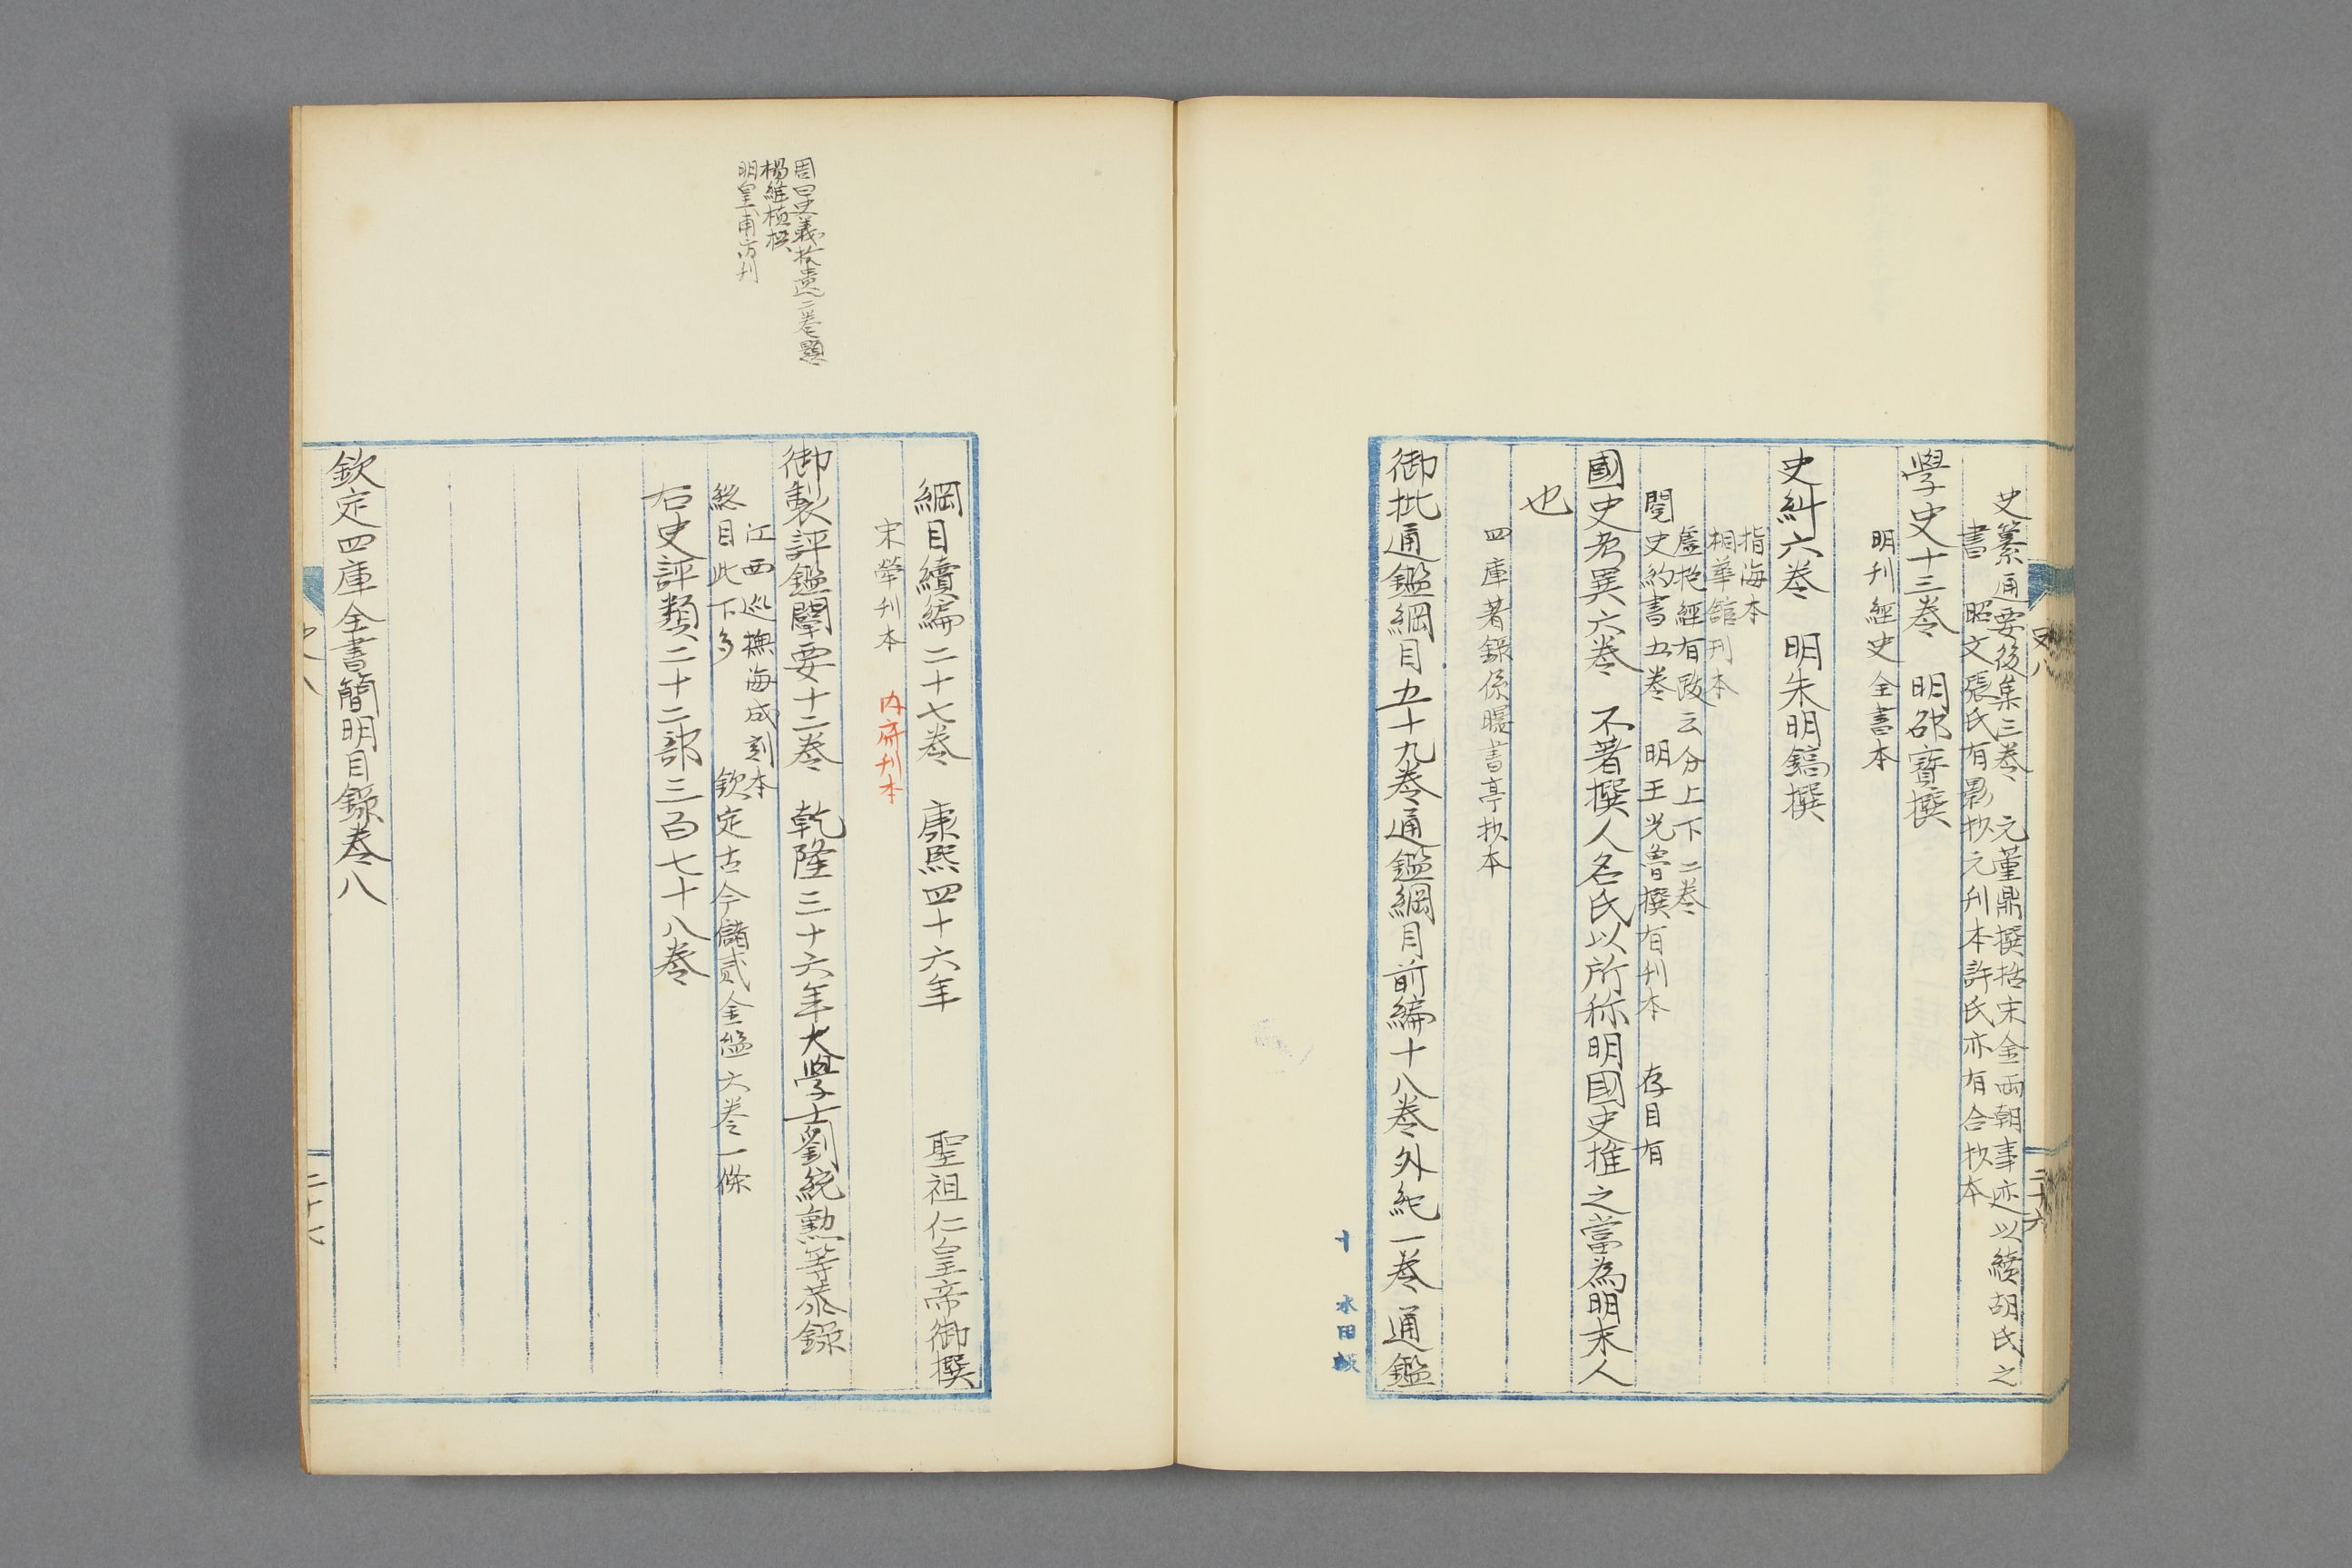 史纂通要後集三卷 元董鼎撰括宋金兩朝事迹以續胡氏之
書 昭文張氏有影抄元刊本許氏亦有合抄本
學史十三卷 明邵寶撰
明刊經史全書本
史糾六卷 明朱明鎬撰
指海本
相華館刊本
盧抱經有跋云分上下二卷
閱史約書五卷 明王光魯撰有刊本 存目有
國史考異六卷 不著撰人名氏以所称明國史推之當為明末人
也
四庫著錄係曝書亭抄本
御批通鑑綱目五十九卷通鑑綱目前編十八卷外紀一卷通鑑
史八
二十六
綱目續編二十七卷 康熙四十六年 聖祖仁皇帝御撰
宋犖刊本 内府刊本
周曰史義拾遺二卷題
楊維楨撰
明皇甫汸刊
御製評鑑闡要十二卷 乾隆三十六年大學士劉統勳等恭錄
江西巡撫海成刻本
總目此下多 欽定古今儲貳金鑑六卷一條
右史評類二十二部三百七十八卷
欽定四庫全書簡明目錄卷八